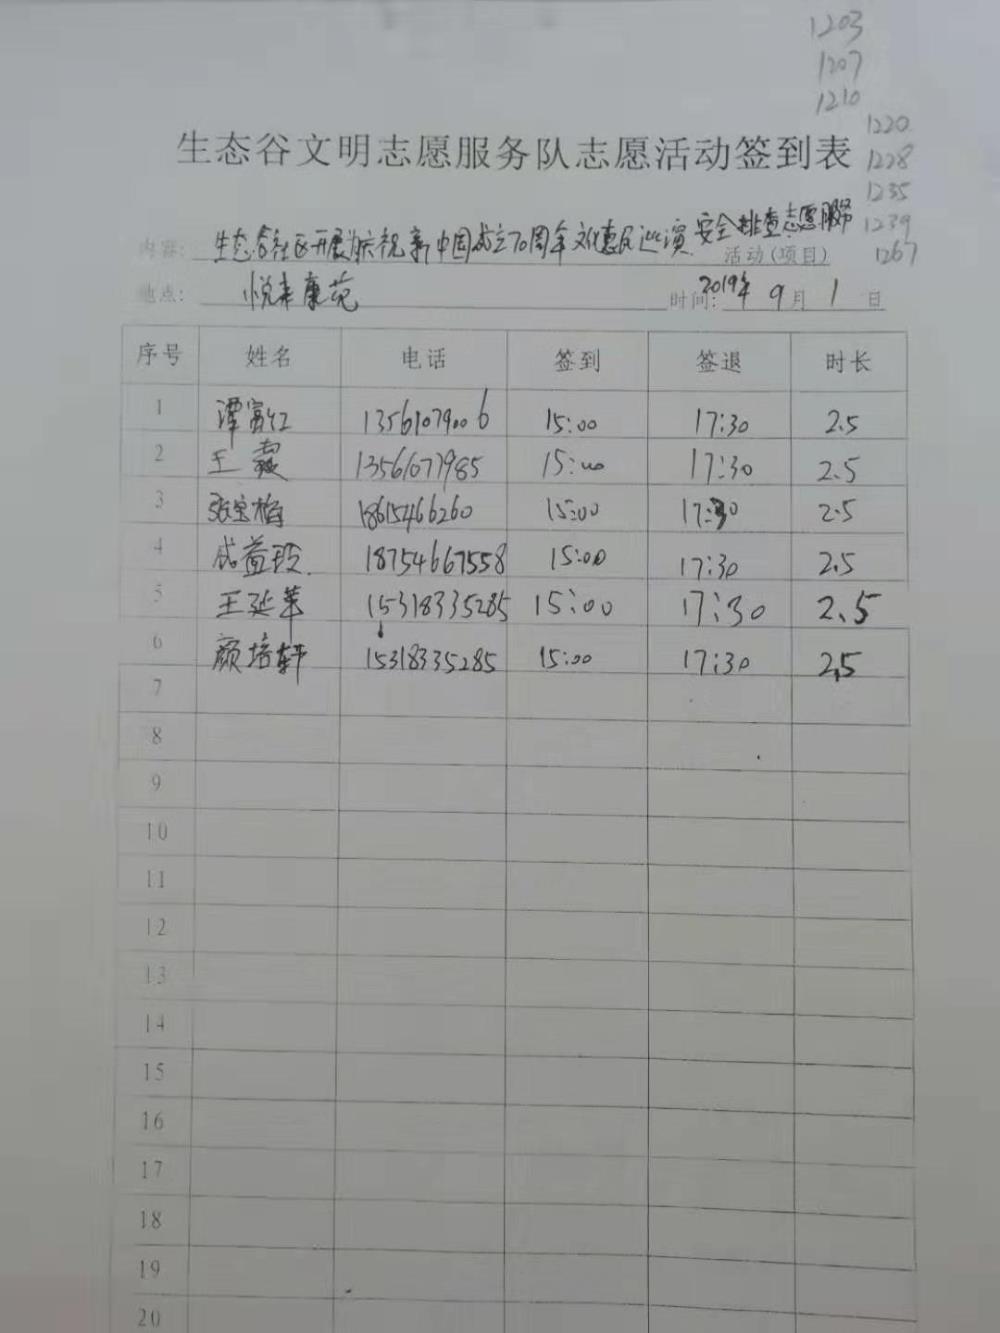 1203
1207
1210
1220
1228
1235
1239
1267
生态谷文明志愿服务队志愿活动签到表
内容: 生态谷社区开展为庆祝新中国成立70周年文化惠民巡演安全排查志愿服务 活动(项目)
地点: 悦来康苑 时间: 2019年 9 月 1 日
序号 姓名 电话 签到 签退 时长
1 谭富红 13561079006 15:00 17:30 2.5
2 王 13561077985 15:00 17:30 2.5
3 张宝梅 18615466260 15:00 17:30 2.5
4 成益段 18754667558 15:00 17:30 2.5
5 王延苹 15318335285 15:00 17:30 2.5
6 颜培轩 15318335285 15:00 17:30 2.5
7
8
9
10
11
12
13
14
15
16
17
18
19
20